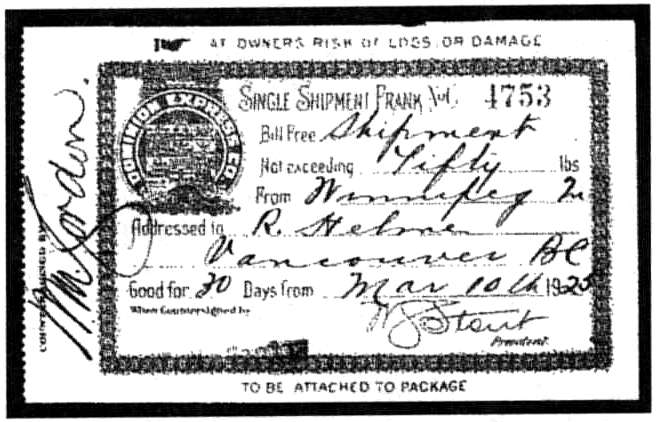 AT OWNERS RISK OF LOSS OR DAMAGE
DOMINION EXPRESS CO.
SINGLE SHIPMENT FRANK No. 4753
Bill Free Shipment
Not exceeding Fifty lbs
From Winnipeg
Addressed to R. Helmer
Vancouver BC
Good for 30 Days from Mar 10th 1925
When Countersigned by
Stout
President.
TO BE ATTACHED TO PACKAGE
COUNTERSIGNED BY